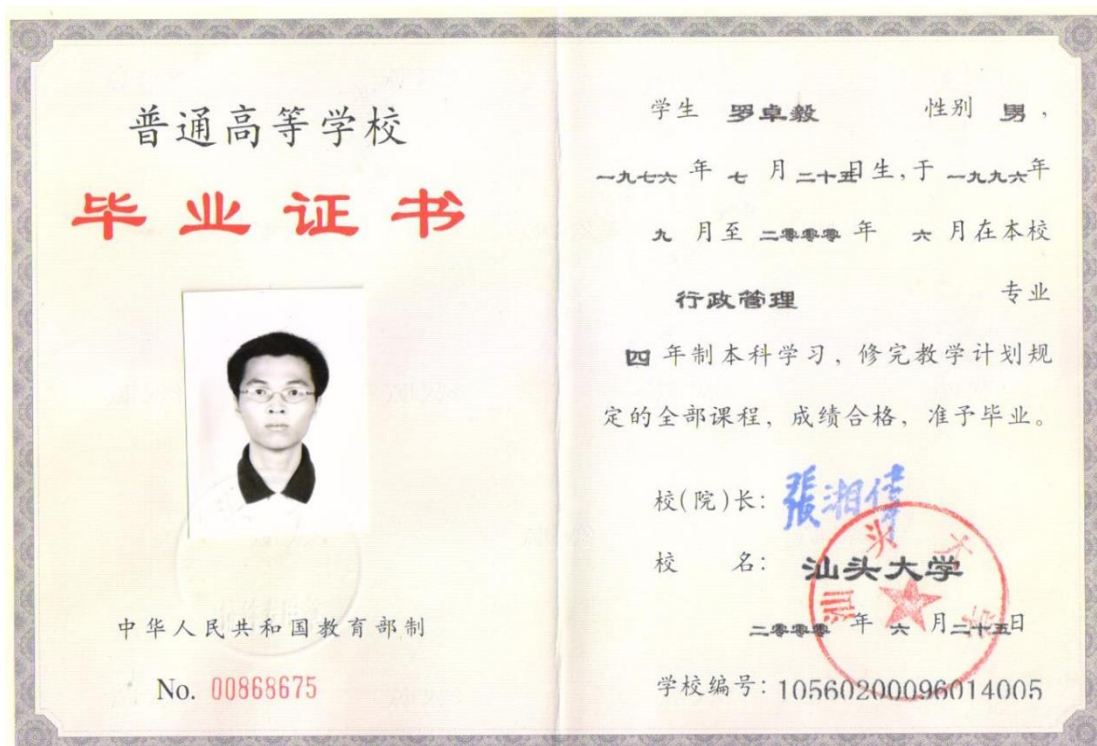 普通高等学校
毕业证书
中华人民共和国教育部制
No. 00868675
学生 罗卓毅 性别 男，
一九七六 年 七 月 二十五日生,于 一九九六年
九 月至 二零零零 年 六 月在本校
行政管理 专业
四 年制本科学习，修完教学计划规
定的全部课程，成绩合格，准予毕业。
校(院)长: 張湘偉
校 名: 汕头大学
汕头大学
二零零零 年 六 月二十五日
学校编号: 10560200096014005